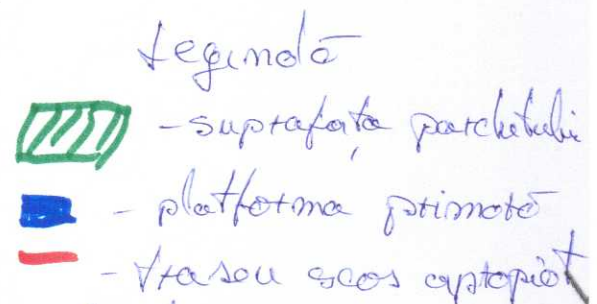 Legendă
- suprafața parchetului
- platforma primară
- traseu scos apropiat